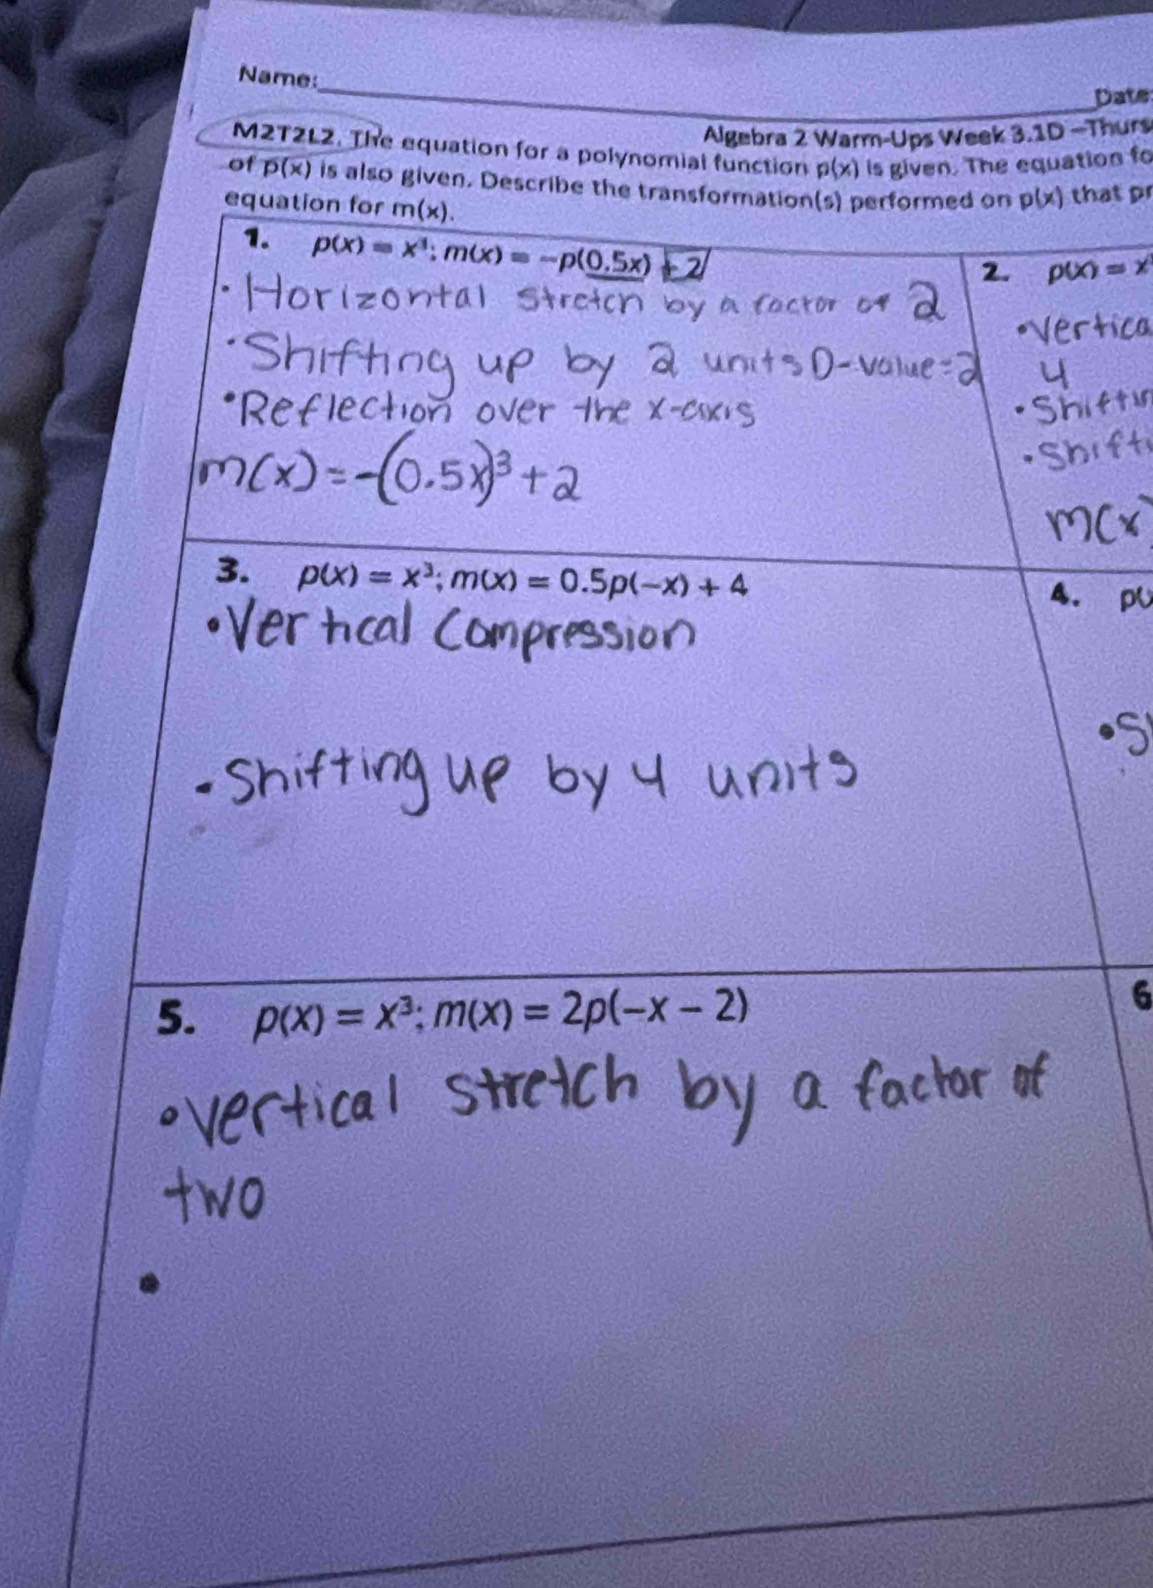 Name:
Date:
Algebra 2 Warm-Ups Week 3.1D – Thurs
M2T2L2. The equation for a polynomial function p(x) is given. The equation fo
of p(x) is also given. Describe the transformation(s) performed on p(x) that pr
equation for m(x).
1. p(x) = x³; m(x) = -p(0.5x) + 2
2. p(x) = x
· Horizontal stretch by a factor of 2
• Vertica
· Shifting up by 2 units D-value=2
4
• Reflection over the x-axis
• Shiftin
m(x) = -(0.5x)³ + 2
• Shifti
m(x)
3. p(x) = x³; m(x) = 0.5p(−x) + 4
4. p(
• Vertical Compression
• S
• Shifting up by 4 units
5. p(x) = x³; m(x) = 2p(−x − 2)
6
• vertical stretch by a factor of
two
•